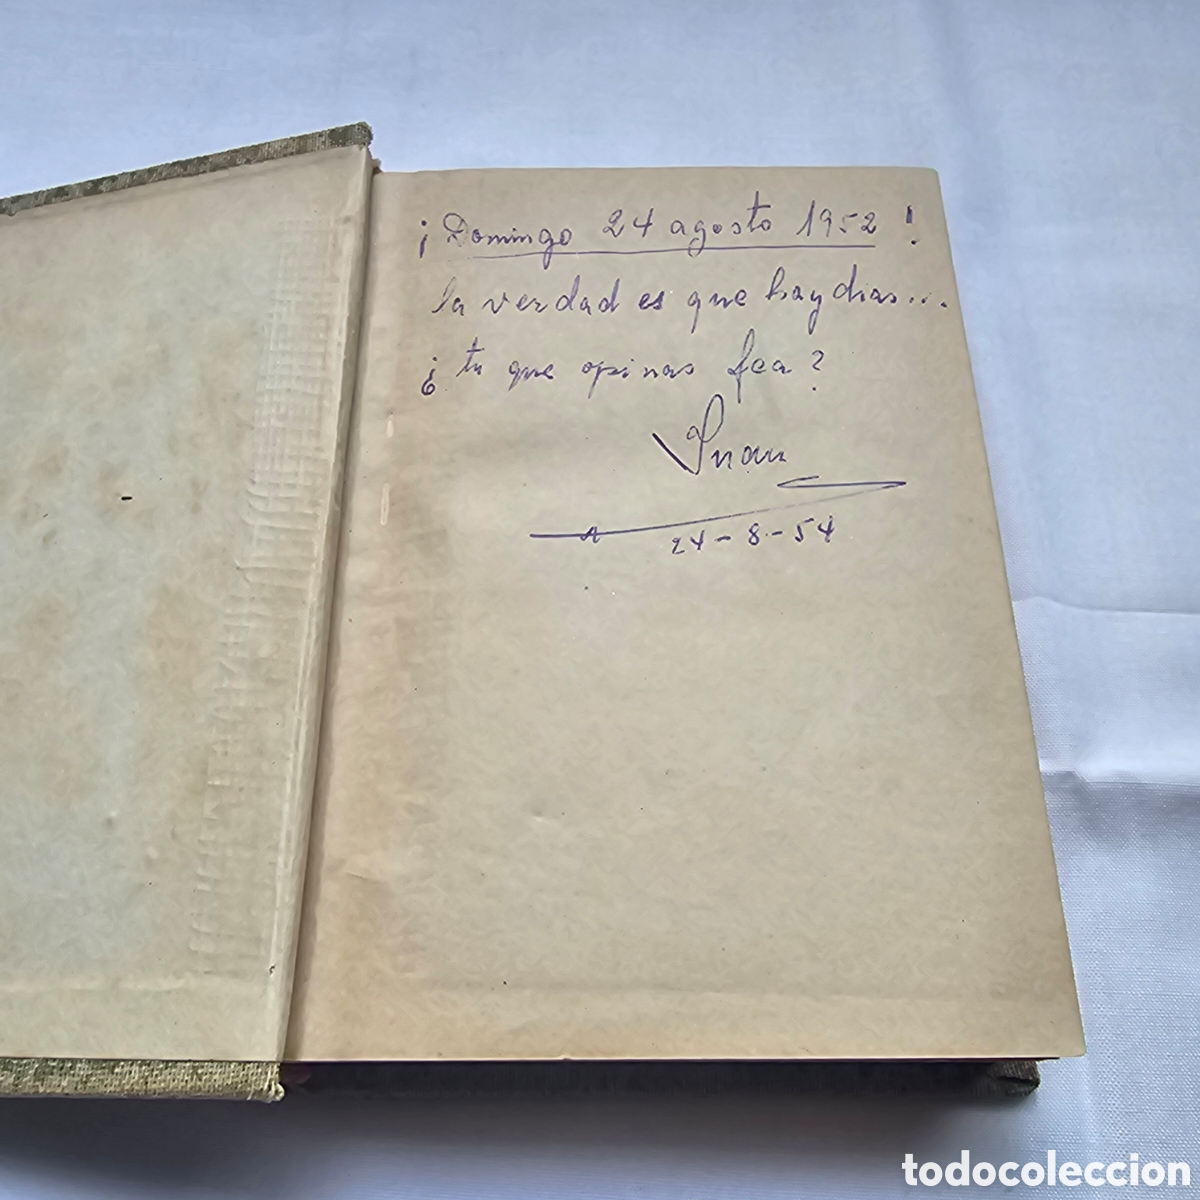 ¡Domingo 24 agosto 1952!
la verdad es que hay dias...
¿tu que opinas fea?
Juan
24-8-54
todocoleccion